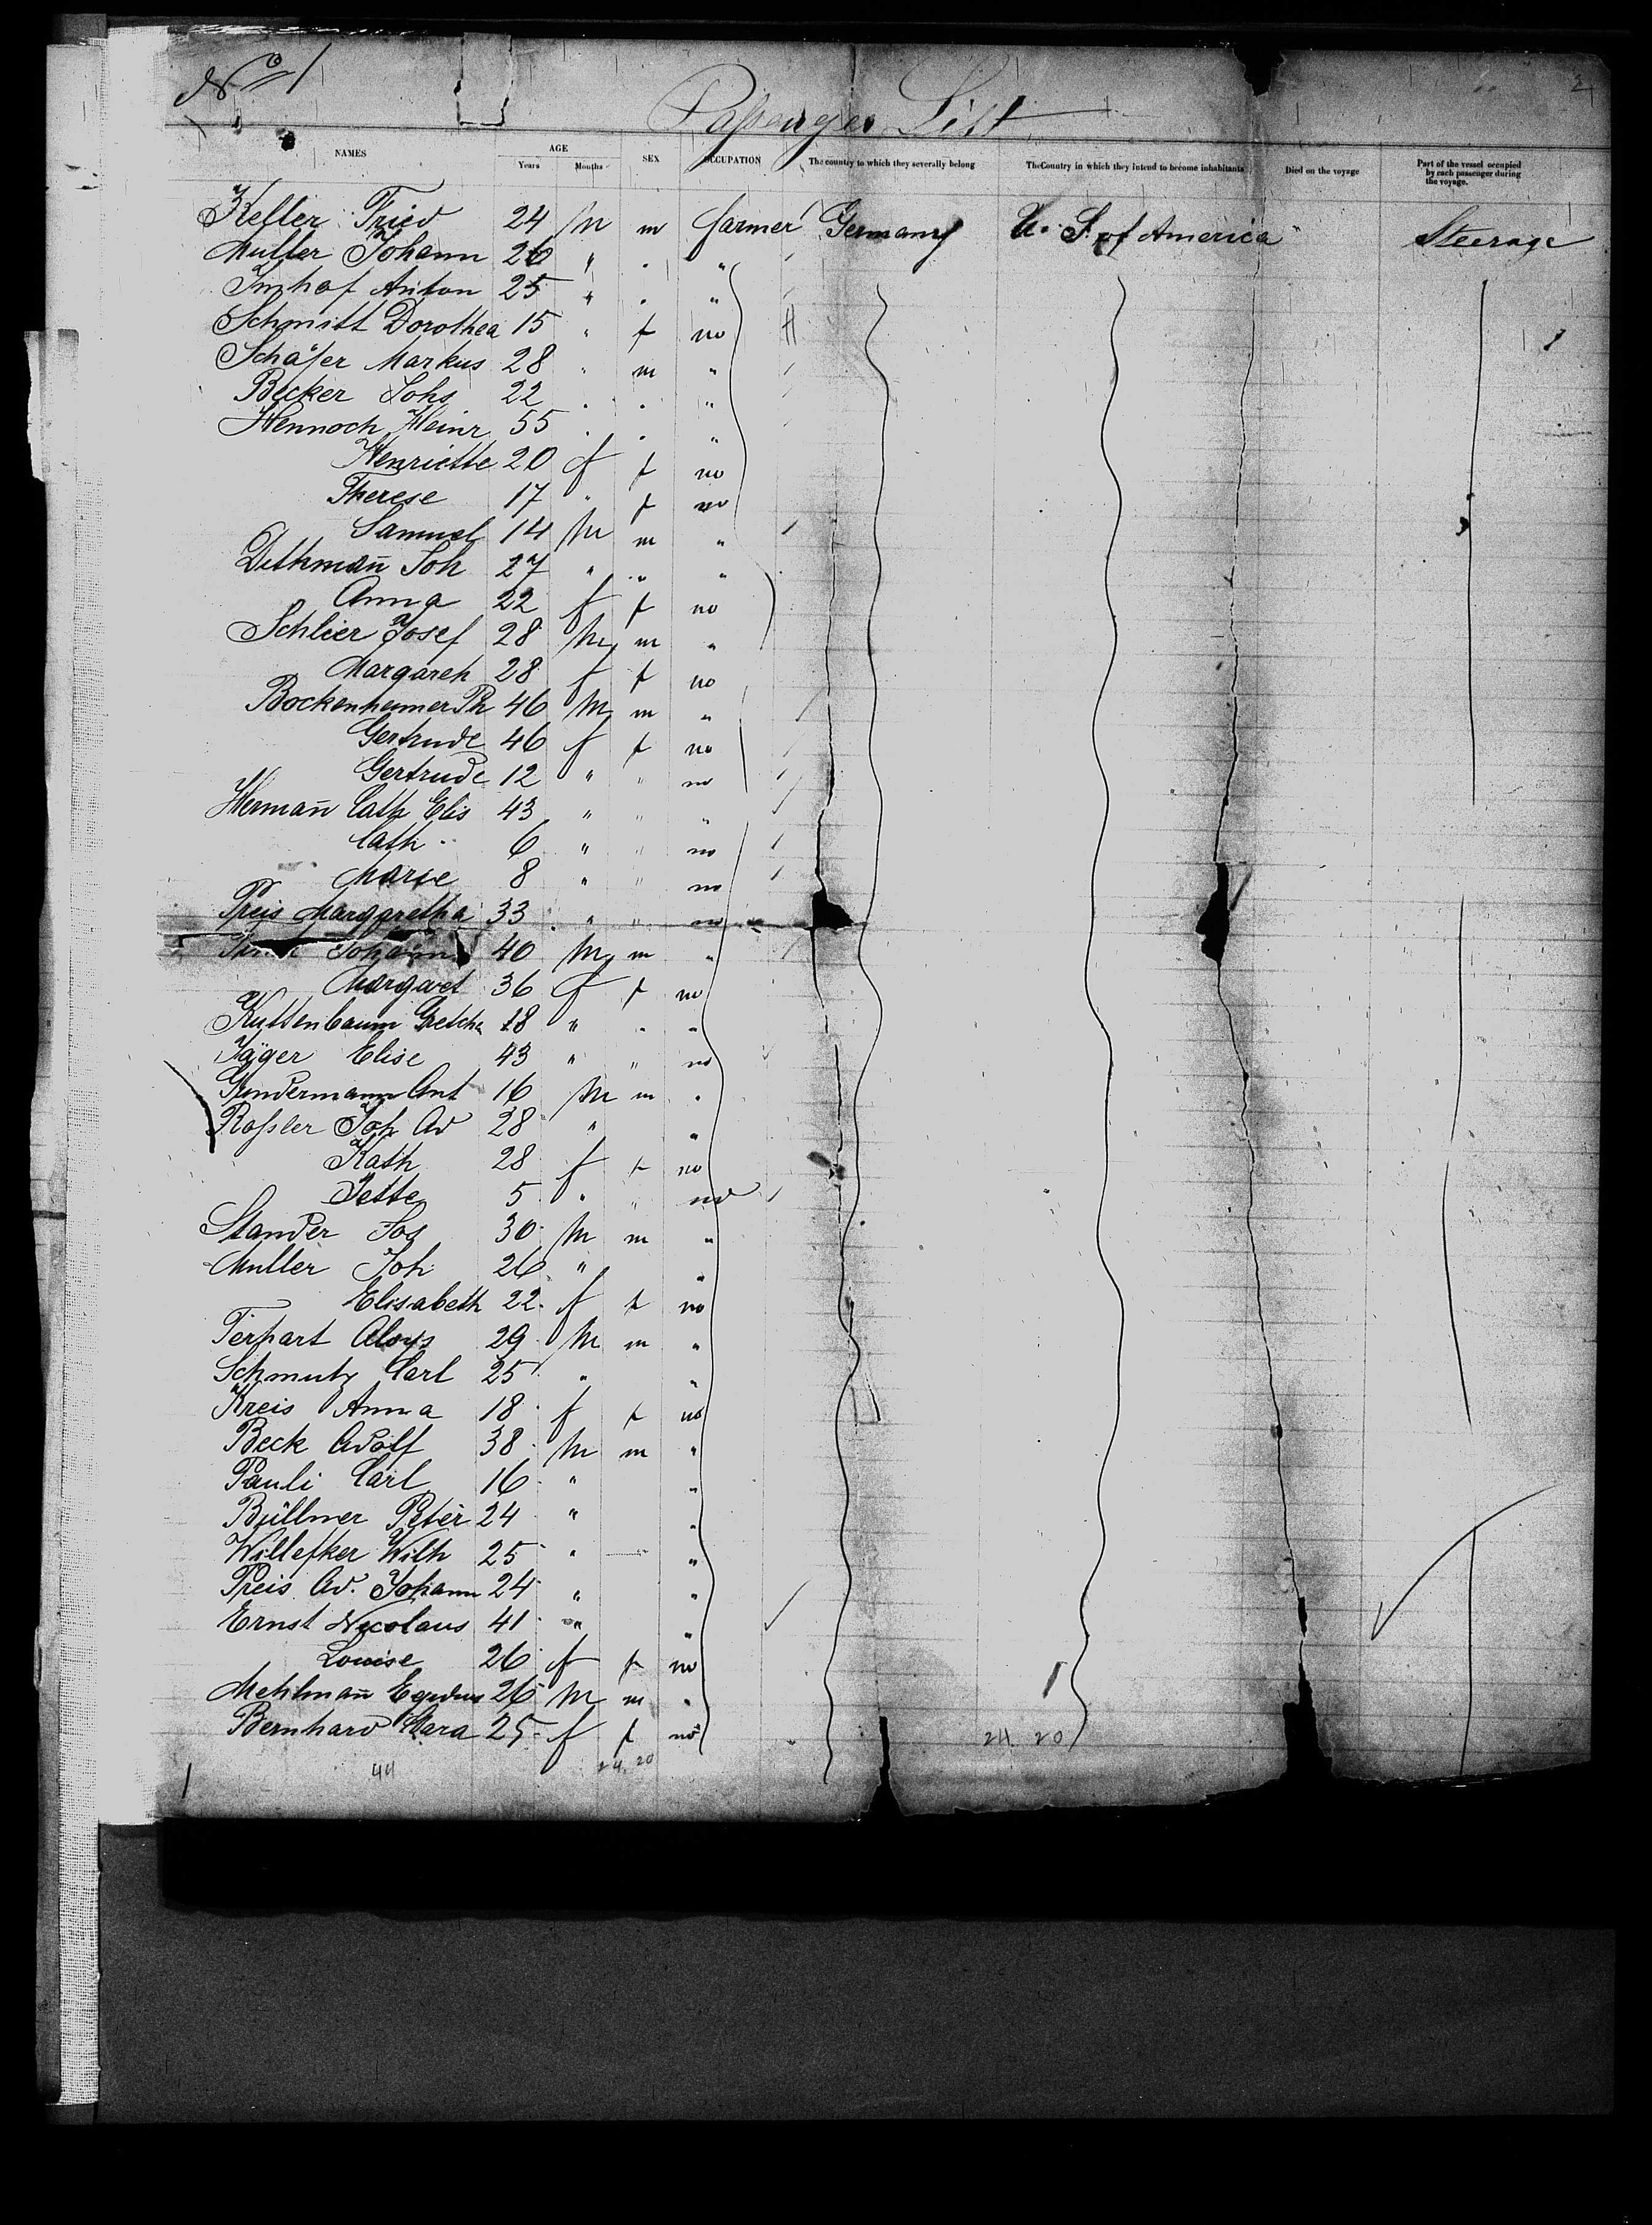 No 1
2
Passenger List
NAMES AGE Years Months SEX OCCUPATION The country to which they severally belong The Country in which they intend to become inhabitants Died on the voyage Part of the vessel occupied by each passenger during the voyage.
Keller Fried 24 M m farmer Germany U. S. of America Steerage
Muller Johann 26 " " "
Imhof Anton 25 " " "
Schmitt Dorothea 15 " f no
Schäfer Markus 28 " m "
Becker Johs 22 " " "
Hennoch Heinr 55 " " "
Henriette 20 f f no
Therese 17 " f no
Samuel 14 M m "
Dethman̄ Joh 27 " " "
Anna 22 f f no
Schlier Josef 28 M m "
Margareh 28 f f no
Bockenheimer Ph 46 M m "
Gertrude 46 f f no
Gertrude 12 " " no
Herman̄ Cath Elis 43 " " "
Cath 6 " " no
Marie 8 " " no
Preis Margaretha 33 " " no
Johann 40 M m "
Margaret 36 f f no
Kuttenbaum Gretch 18 " " "
Jäger Elise 43 " " no
Gundermann Ant 16 M m "
Roßler Joh Ad 28 " "
Kath 28 f f no
Jette 5 " " no
Stander Jos 30 M m "
Muller Joh 26 " "
Elisabeth 22 f f no
Terhart Aloys 29 M m "
Schmutz Carl 25 " "
Kreis Anna 18 f f no
Beck Adolf 38 M m "
Pauli Carl 16 " "
Büllmer Peter 24 " "
Willefker Wilh 25 " "
Preis Ad. Johann 24 " "
Ernst Nicolaus 41 " "
Louise 26 f f no
Mehlman̄ Egidius 26 M m "
Bernhard Clara 25 f f no
44 24. 20 24. 20